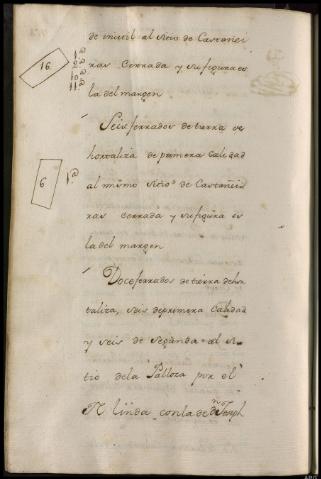 de inutil al sitio de Castañei
ras Cerrada y su figura es
la del margen
16
Seis ferrados de tierra de
hortaliza de primera Calidad
al mismo sitio de Castañei
ras cerrada y su figura es
la del margen
6
Doce ferrados de tierra de hor
taliza, seis de primera Calidad
y seis de segunda al si
tio de la Palloza por el
N linda con la de Dn Joseph